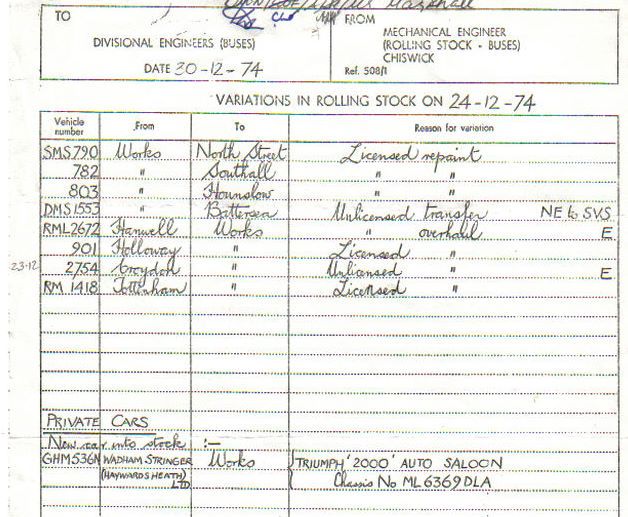 TO
FROM
DIVISIONAL ENGINEERS (BUSES)
MECHANICAL ENGINEER
(ROLLING STOCK - BUSES)
CHISWICK
DATE 30-12-74
Ref. 508/1
VARIATIONS IN ROLLING STOCK ON 24-12-74
Vehicle number From To Reason for variation
SMS 790 Works North Street Licensed repaint
782 " Southall " "
803 " Hounslow " "
DMS 1553 " Battersea Unlicensed transfer NE to SVS
RML 2672 Hanwell Works " overhaul E
901 Holloway " Licensed "
23-12 2754 Croydon " Unlicensed " E
RM 1418 Tottenham " Licensed "
PRIVATE CARS
New car into stock :-
GHM536N WADHAM STRINGER Works { TRIUMPH '2000' AUTO SALOON
(HAYWARDS HEATH) LTD Chassis No ML6369DLA